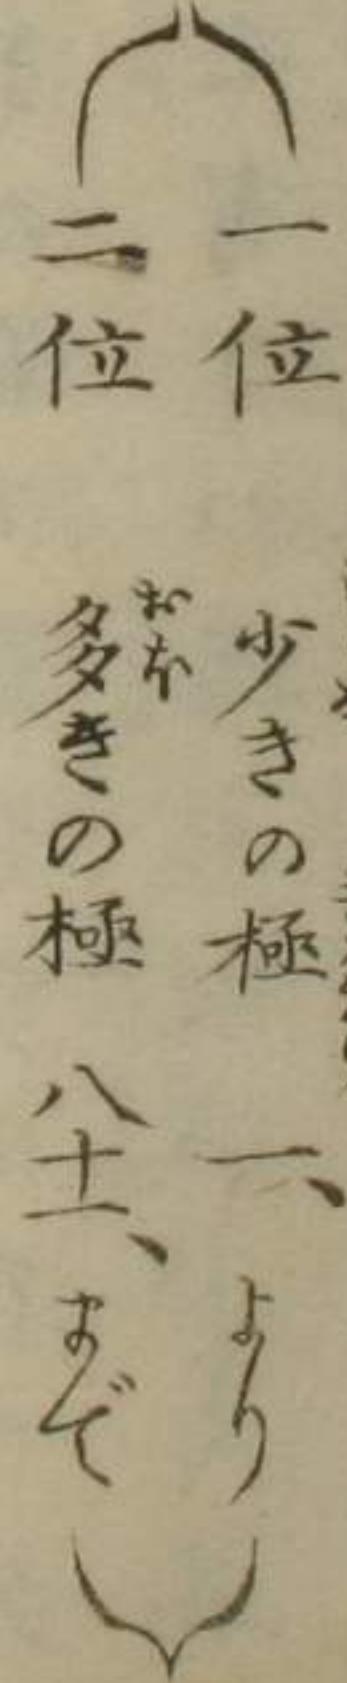 一位 少きの極 一、より
二位 多きの極 八十一、まで
おほ